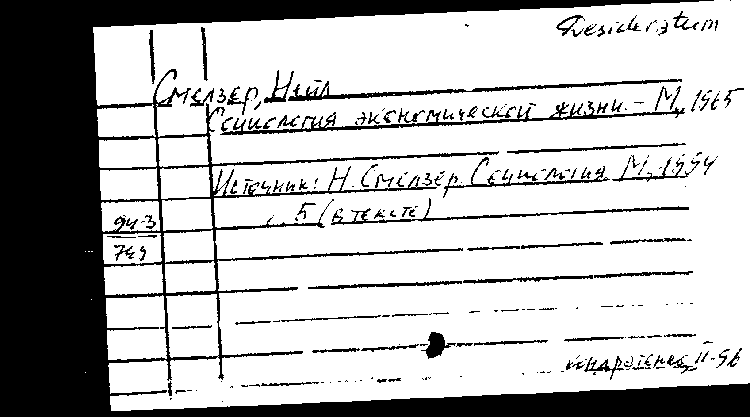 Desideratum
Смелзер, Нейл
Социология экономической жизни. - М., 1965
Источник: Н. Смелзер. Социология. М., 1994
с. 5 (в тексте)
94-3
749
II-96